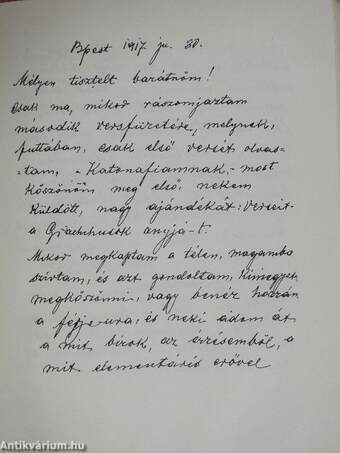 Bpest 1917 ju. 30.
Mélyen tisztelt barátnőm!
Csak ma, mikor rászomjaztam
második versfüzetére, melynek,
futtában, csak első versét olvas-
-tam, - Katonafiamnak, - most
köszönöm meg első, nekem
küldött, nagy ajándékát: Verseit-
a Grachhusok anyjá-t.
Mikor megkaptam a télen, magamba
szívtam, és azt gondoltam, kimegyek
megköszönni, vagy benéz hozzám
a férje-ura, és neki adom át
a mit bírok, az érzésemből, a
mit elementáris erővel
Antikvárium.hu